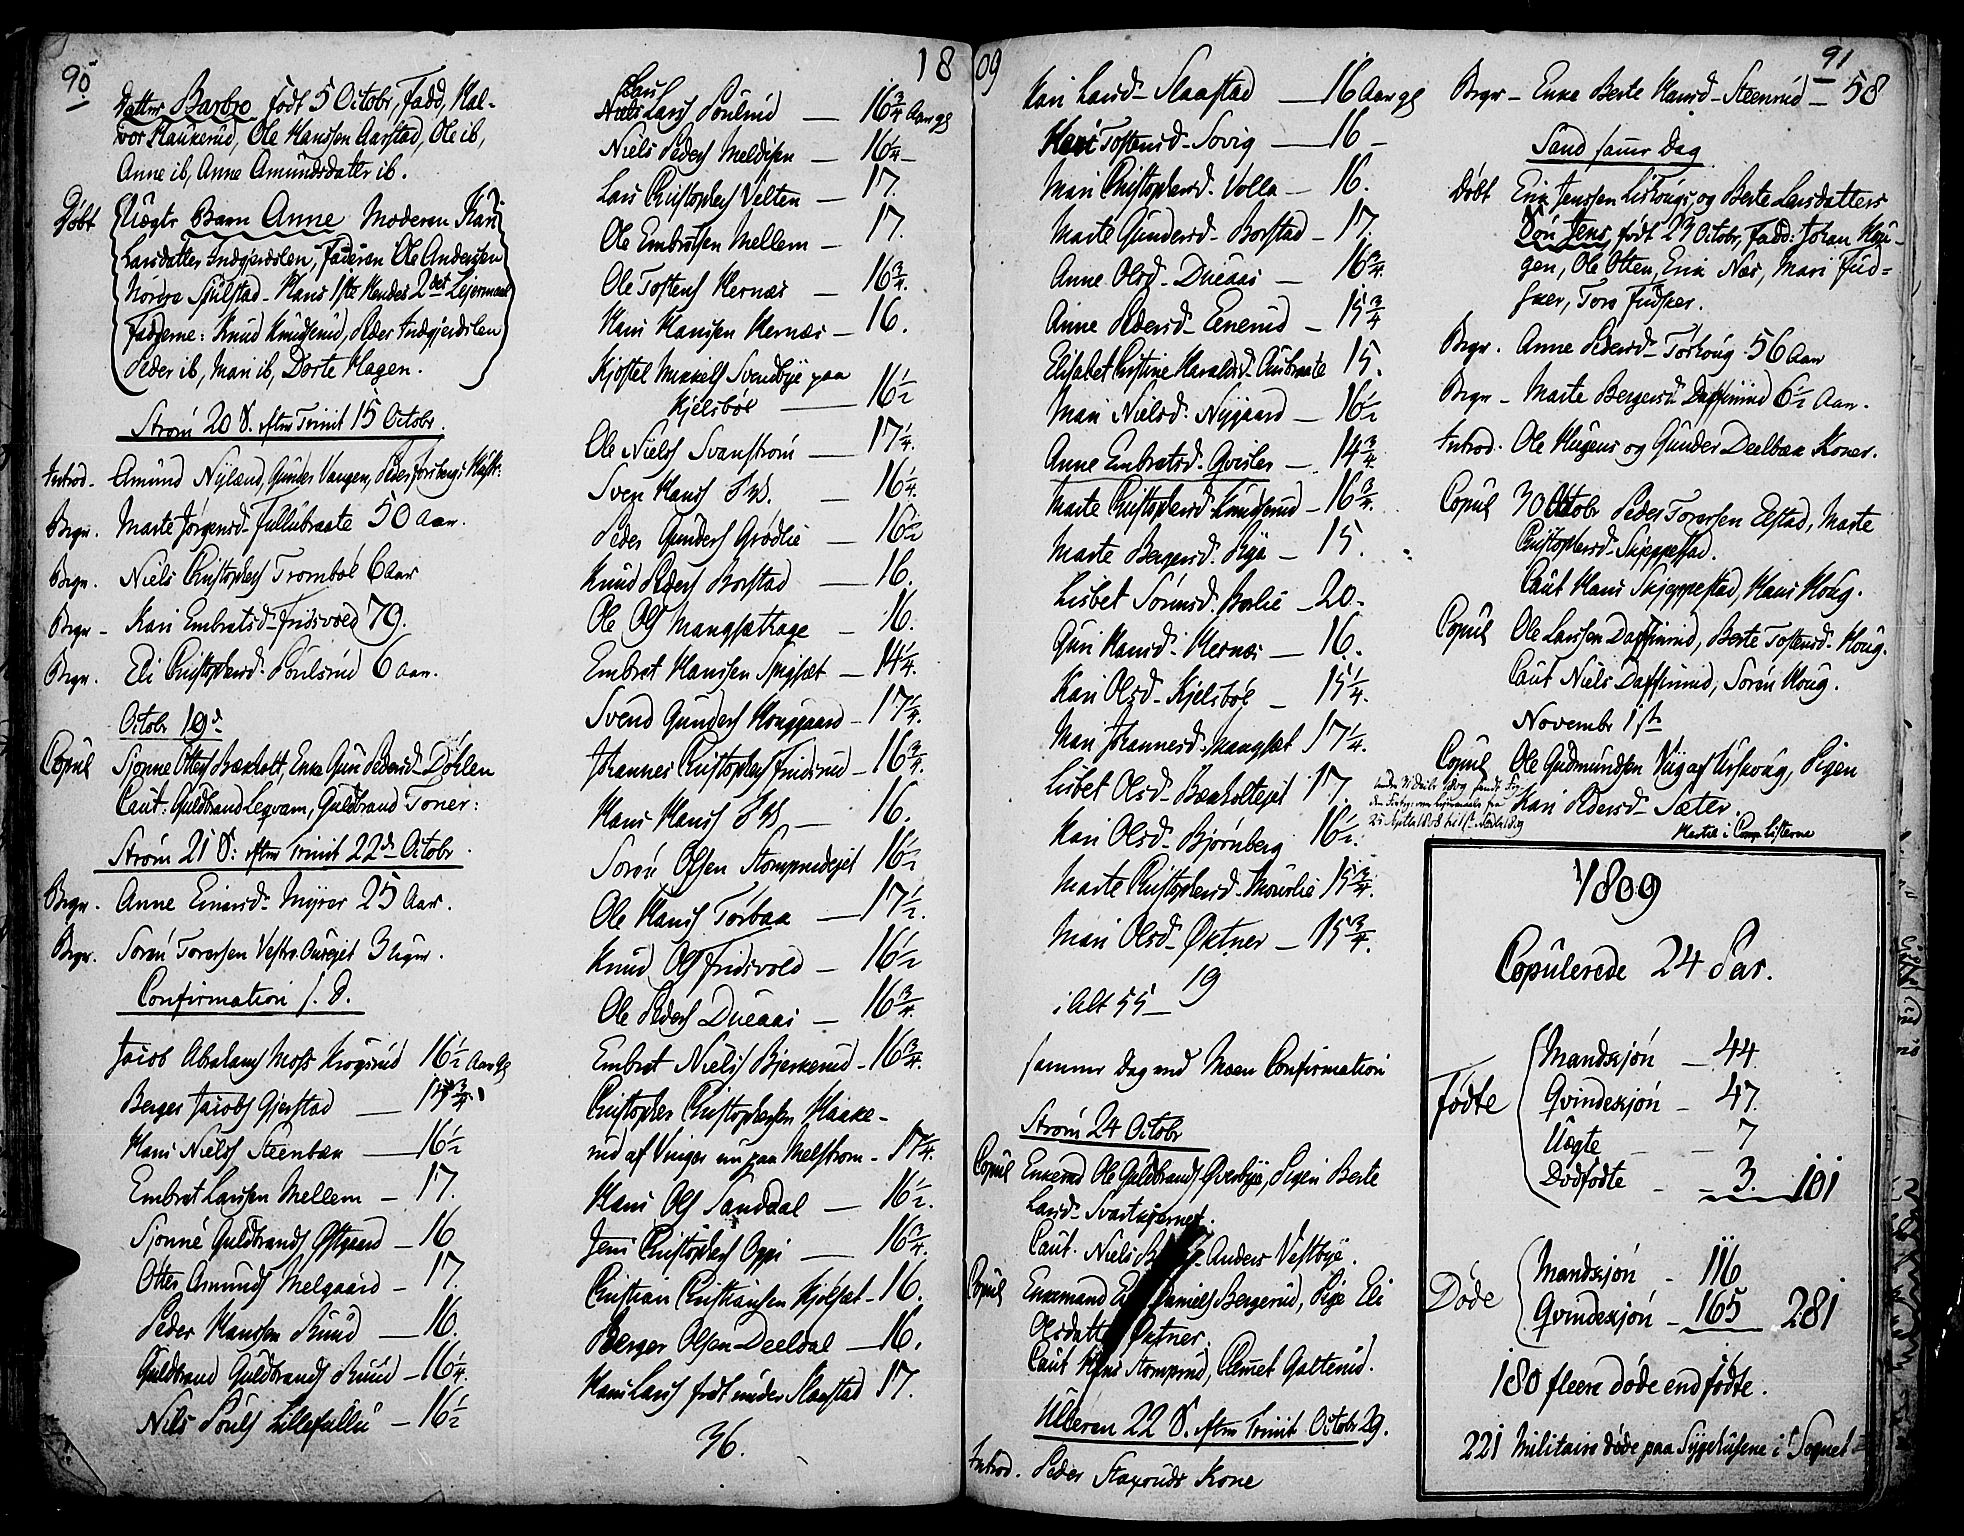 90
Datter Barbro født 5 Octobr, Fadd, Hal-
vor Haukerud, Ole Hanssen Aarstad, Ole ib,
Anne ib, Anne Amundsdatter ib.
Døbt Uægte Barn Anne Moderen Kari
Larsdatter Indgjerdslen, Faderen Ole Andersen
Nordre Spulstad - Hans 1ste Hendes 2det Lejermaal
Fadderne: Knud Knudserud, Peder Indgjerdslen
Peder ib, Mari ib, Dorte Hagen.
Strøm 20 S. efter Trinit 15 Octobr.
Introd. Amund Nylænd, Gunder Vangen, Peder Forsbergs
Begr. Marte Jørgensd. Fullubraate 50 Aar.
Begr. Niels Christophers Trombøl 6 Aar
Begr. Kari Embretsd. Fridsvold 79.
Begr. Eli Christophersd. Poulsrud 6 Aar.
Octobr 19d
Copul Sjønne Otters Bækholt, Enke Guri Pedersd. Dølen
Caut: Guldbrand Leqvam, Guldbrand Toner:
Strøm 21 S: efter Trinit 22d Octobr.
Begr. Anne Einersd. Myrer 25 Aar.
Begr. Søren Torersen Vestre Ourejet 3 Uger.
Confirmation s. D.
Jacob Abrahams Moss Krogsrud 16½ Aar gl
Berger Jacobs Gjerstad — 15¾
Hans Niels Steenbæk — 16½
Embret Larssen Mellem — 17.
Sjønne Guldbrands Østgaard — 16
Otter Amunds Melgaard — 17.
Peder Hanssen Ruud — 16.
Guldbrand Guldbrands Ruud — 16¼.
Niels Pouls Lillefullu — 16½
18
Lars
Lars Poulsrud — 16¾ Aar gl
Niels Peders Meldisen — 16¼ -
Lars Christophers Velten — 17.
Ole Embretsen Mellem — 17.
Ole Tostens Hernæs — 16¾.
Hans Hanssen Hernæs — 16.
Kjøstel Mikkels Svendbye paa
Kjelsbøl — 16½
Ole Niels Svanstrøm — 17¼.
Sven Hans — 16¼.
Peder Gunders Grødlie — 16½
Knud Peders Borstad — 16.
Ole Ols Mangsethage — 16.
Embret Hanssen Spigset — 14¼.
Svend Gunders Houggaard — 17¼.
Johannes Christophers Fridsrud — 16¾.
Hans Hans — 16.
Søren Olsen Stomprudejet 16½
Ole Hans Torbaa — 17½.
Knud Ols Fridsvold — 16½
Ole Peders Dueaas — 16¾.
Embret Niels Bjerkerud — 16¾.
Christopher Christophersen Haake-
rud af Vinger nu paa Melstrøm — 17¼.
Hans Ols Sanddal — 16½.
Jens Christophers Oppi — 16¾.
Christian Christiansen Kjølset — 16.
Berger Olsen Deeldal — 16.
Hans Lars født under Slaastad 17.
36.
09
Kari Larsd. Slaastad — 16 Aar gl
Kari Tostensd. Sorvig — 16 -
Mari Christophersd. Volla — 16.
Marte Gundersd. Borstad — 17.
Anne Olsd. Dueaas — 16¾.
Anne Pedersd. Enerud — 15¾
Elisabet Kirstine Haraldsd. Aurbraate 15.
Mari Nielsd. Nygaard — 16½
Anne Embretsd. Qvisler — 14¾.
Marte Christophersd. Knudserud — 16¾.
Marte Bergersd. Rye — 15.
Lisbet Sørensd. Borlie — 20.
Guri Hansd. Hernæs — 16.
Kari Olsd. Kjelsbøl — 15¼.
Mari Johannesd. Mangset 17¼.
Lisbet Olsd. Bækholtejet 17.
Kari Olsd. Bjørnberg 16½.
Marte Christophersd. Mourlie 15¾.
Mari Olsd. Øktner — 15¾.
19
i Alt 55 —
Sammer Dag end Moen Confirmation
Strøm 24 Octobr
Copul Enkemd Ole Guldbrands Overbye, Pigen Berte
Larsd. Svartkjernet.
Caut. Niels Anders Vestbye.
Copul Enkemand Daniels Bergerud, Pige Eli
Olsdatter Øktner.
Caut Hans Stomprud, Clemet Galterud.
Ulleren 22 S. efter Trinit Octobr 29.
Introd. Peder Staxruds Kone
91
Begr - Enke Berte Hansd. Steenrud — 58
Sand samme Dag
Døbt Erik Jenssen Lishougs og Berte Larsdatters
Søn Jens født 29 Octobr, Fadd: Johan Hau-
gen, Ole Otten, Erik Næs, Mari Fud-
sker, Tore Fudsker.
Begr. Anne Pedersd. Torhoug 56 Aar
Begr - Marte Bergersd. Daffinrud 6½ Aar.
Introd. Ole Haugens og Gunder Deelbæk Koner.
Copul 30 Octobr Peder Torersen Elstad, Marte
Christophersd. Skjeppestad.
Caut Hans Skjeppestad, Hans Houg.
Copul Ole Larssen Daffinrud, Berte Tostensd. Houg.
Caut Niels Daffinrud, Søren Houg.
Novembr 1ste
Copul Ole Gudmundsen Viig af Urskoug, Pigen
Kari Pedersd. Sæter.
1809
Copulerede 24 Par.
Fødte Mandkjøn — 44
Qvindekjøn — 47.
Uægte - 7
Dødfødte - 3. 101
Døde Mandkjøn - 116
Qvindekjøn - 165 281
180 fleere døde end fødte.
221 Militaire døde paa Sygehusene i Sognet